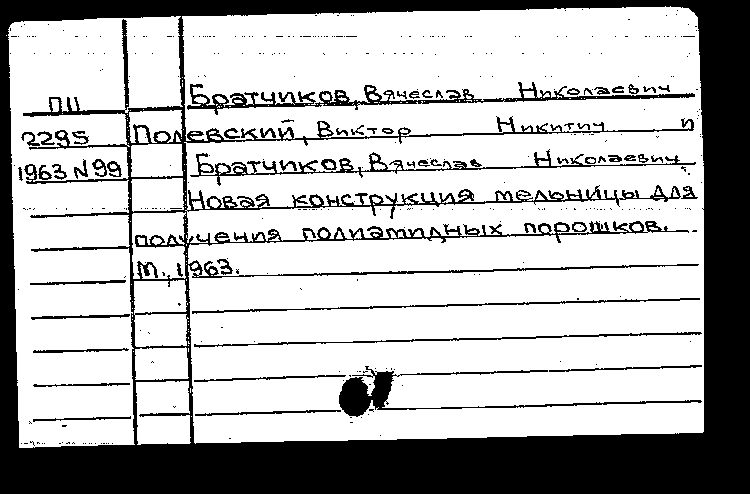 Братчиков, Вячеслав Николаевич
П11
2295 Полевский, Виктор Никитич и
1963 N 99 Братчиков, Вячеслав Николаевич
Новая конструкция мельницы для
получения полиамидных порошков.
М., 1963.